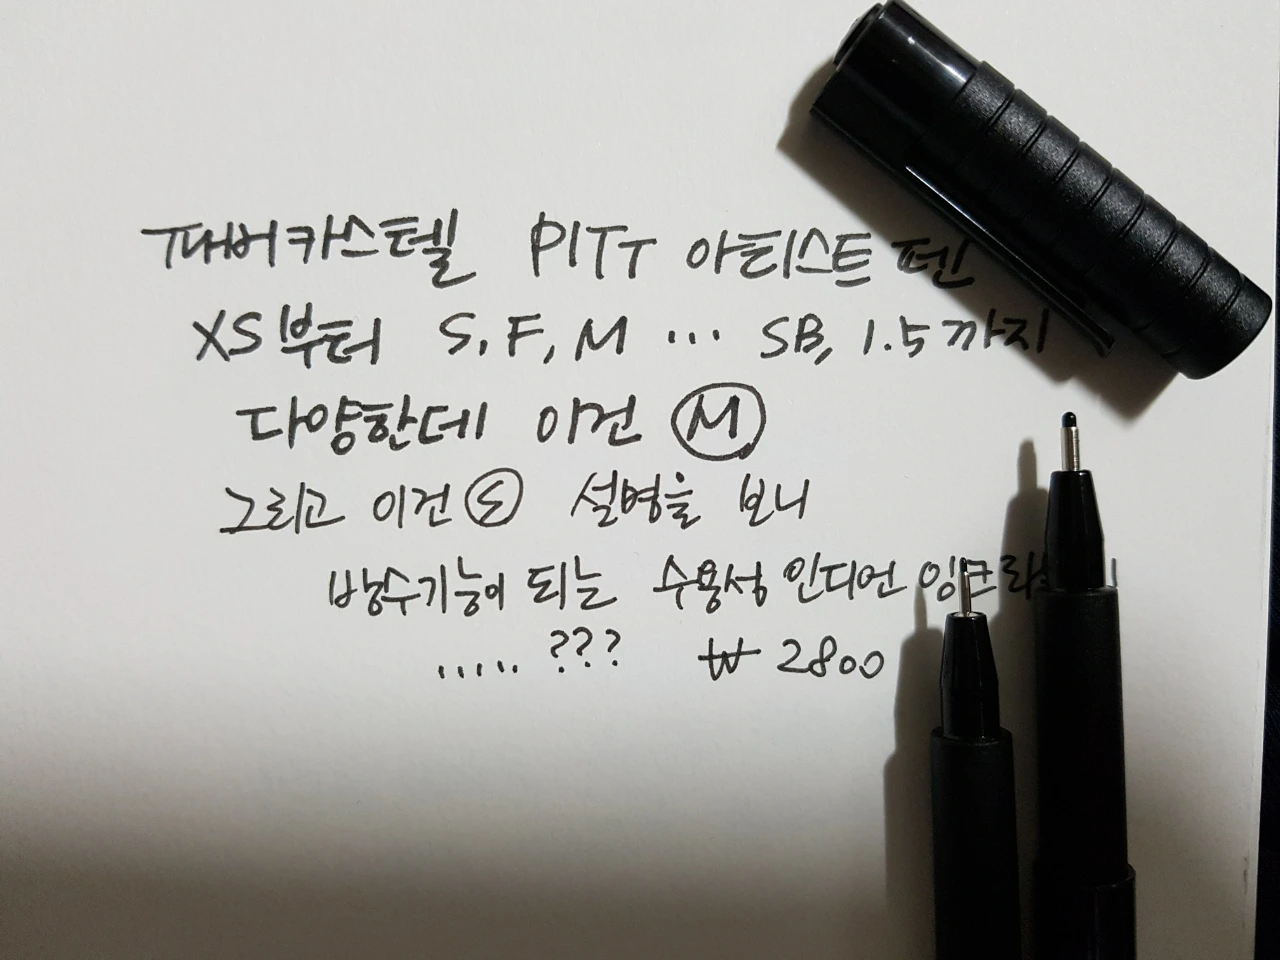 파버카스텔 PITT 아티스트 펜
XS부터 S, F, M ... SB, 1.5까지
다양한데 이건 M
그리고 이건 S 설명을 보니
방수기능이 되는 수용성 인디언 잉크라
..... ??? ₩2800